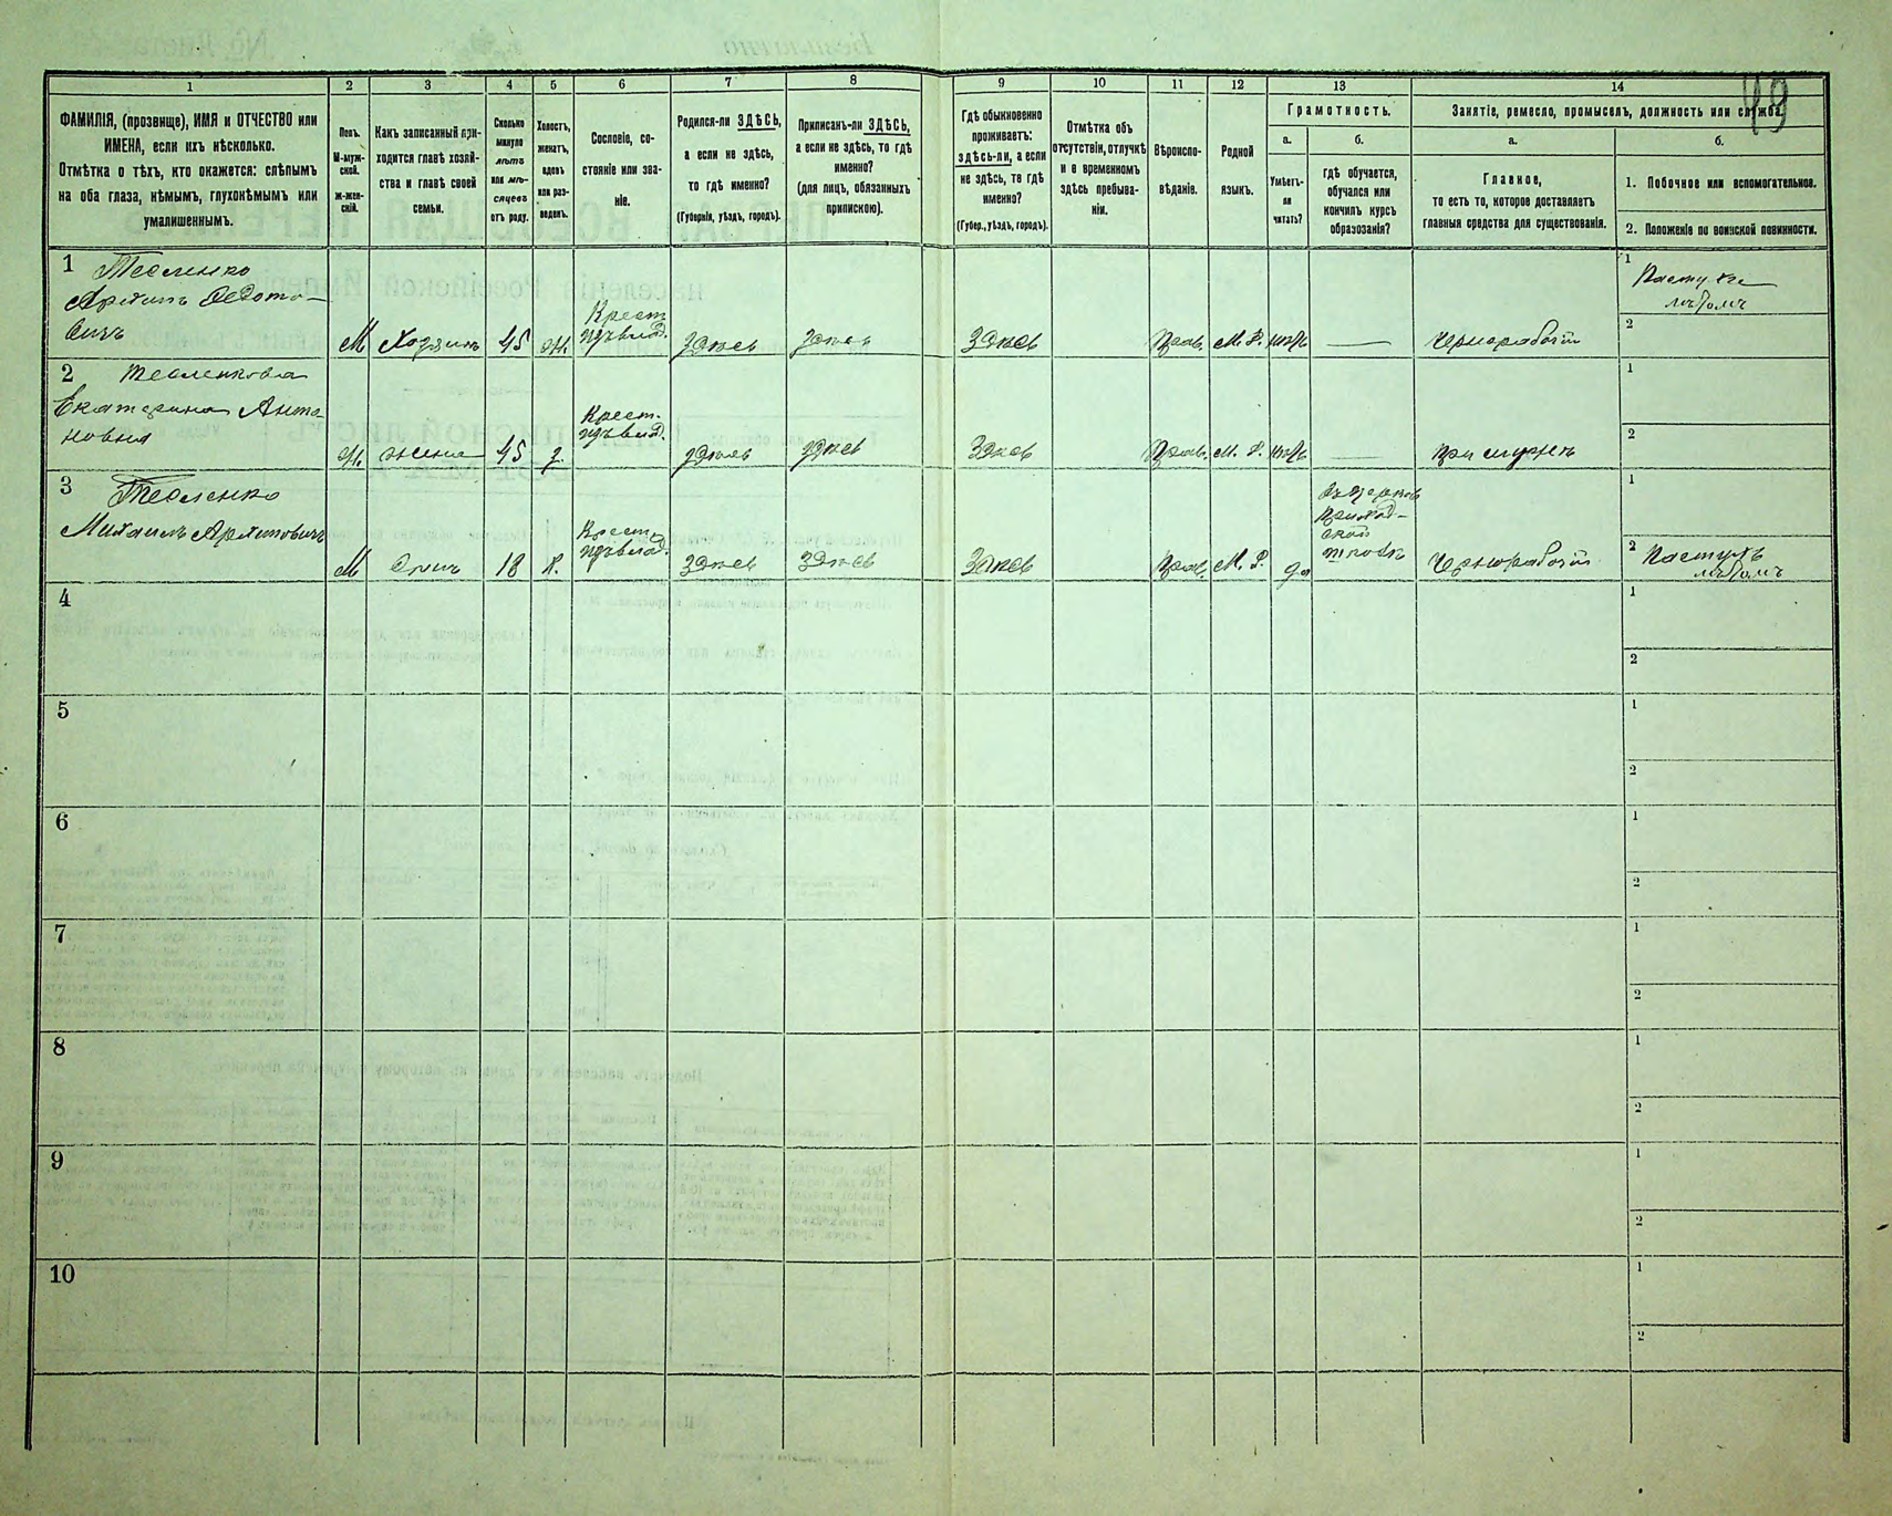 49
1
2
3
4
5
6
7
8
9
10
11
12
13
14
ФАМИЛІЯ, (прозвище), ИМЯ и ОТЧЕСТВО или
ИМЕНА, если ихъ нѣсколько.
Отмѣтка о тѣхъ, кто окажется: слѣпымъ
на оба глаза, нѣмымъ, глухонѣмымъ или
умалишеннымъ.
Полъ.
М-муж-
ской.
Ж-жен-
скій.
Какъ записанный при-
ходится главѣ хозяй-
ства и главѣ своей
семьи.
Сколько
минуло
лѣтъ
или мѣ-
сяцевъ
отъ роду.
Холостъ,
женатъ,
вдовъ
или раз-
веденъ.
Сословіе, со-
стояніе или зва-
ніе.
Родился-ли ЗДѢСЬ,
а если не здѣсь,
то гдѣ именно?
(Губернія, уѣздъ, городъ).
Приписанъ-ли ЗДѢСЬ,
а если не здѣсь, то гдѣ
именно?
(для лицъ, обязанныхъ
припискою).
Гдѣ обыкновенно
проживаетъ:
здѣсь-ли, а если
не здѣсь, то гдѣ
именно?
(Губер., уѣздъ, городъ).
Отмѣтка объ
отсутствіи, отлучкѣ
и о временномъ
здѣсь пребыва-
ніи.
Вѣроиспо-
вѣданіе.
Родной
языкъ.
Грамотность.
а.
Умѣетъ-
ли
читать?
б.
гдѣ обучается,
обучался или
кончилъ курсъ
образованія?
Занятіе, ремесло, промыселъ, должность или служба.
а.
Главное,
то есть то, которое доставляетъ
главныя средства для существованія.
б.
1. Побочное или вспомогательное.
2. Положеніе по воинской повинности.
1
Архипъ Федото-
вичъ
М
Хозяинъ
45
Ж.
Крест
здѣсь
здѣсь
Здѣсь
Прав.
М. Р.
нѣтъ
—
Чернорабочій
1
2
2
Екатерина Анто-
новна
Ж.
жена
45
З.
Крест.
здѣсь
здѣсь
Здѣсь
Прав.
М. Р.
нѣтъ
—
при мужѣ
1
2
3
Михаилъ Архиповичъ
М
Сынъ
18
Х.
Крест.
Здѣсь
Здѣсь
Здѣсь
Прав.
М. Р.
да
Чернорабочій
1
2
Пастухъ
4
1
2
5
1
2
6
1
2
7
1
2
8
1
2
9
1
2
10
1
2